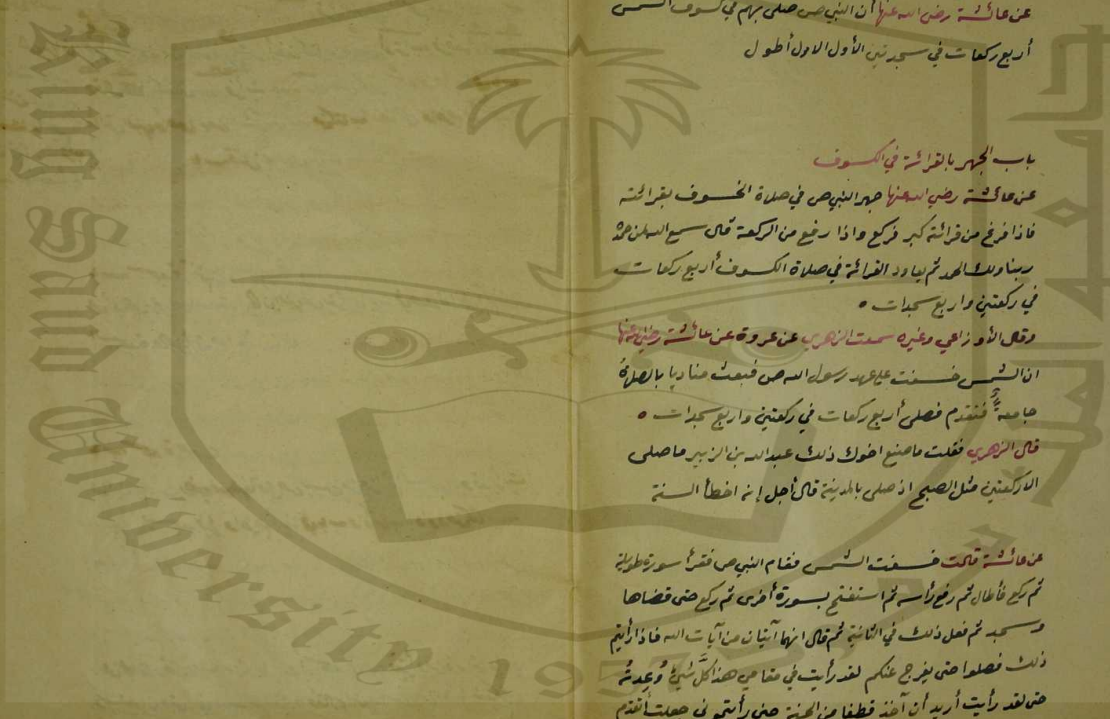 عن عائشة رضي الله عنها أن النبي ص صلى بهم في كسوف الشمس
أربع ركعات في سجدتين الأول الاول أطول
باب الجهر بالقرائة في الكسوف
عن عائشة رضي الله عنها جهر النبي ص في صلاة الخسوف بقرائته
فاذا فرغ من قرائته كبر فركع واذا رفع من الركعة قال سمع الله لمن حمده
ربنا ولك الحمد ثم يعاود القرائة في صلاة الكسوف أربع ركعات
في ركعتين واربع سجدات ه
وقال الأوزاعي وغيره سمعت الزهري عن عروة عن عائشة رضي الله عنها
ان الشمس خسفت على عهد رسول الله ص فبعث مناديا بالصلوة
جامعة فتقدم فصلى أربع ركعات في ركعتين واربع سجدات ه
قال الزهري فقلت ما صنع اخوك ذلك عبد الله بن الزبير ما صلى
الا ركعتين مثل الصبح اذ صلى بالمدينة قال أجل إنه اخطأ السنة
عن عائشة قالت خسفت الشمس فقام النبي ص فقرأ سورة طويلة
ثم ركع فأطال ثم رفع رأسه ثم استفتح بسورة أخرى ثم ركع حتى قضاها
وسجد ثم فعل ذلك في الثانية ثم قال انهما آيتان من آيات الله فاذا رأيتم
ذلك فصلوا حتى يفرج عنكم لقد رأيت في مقامي هذا كل شيئ وعدته
حتى لقد رأيت أريد أن آخذ قطفا من الجنة حين رأيتموني جعلت أتقدم
King Saud University
1957
جامعة الملك سعود